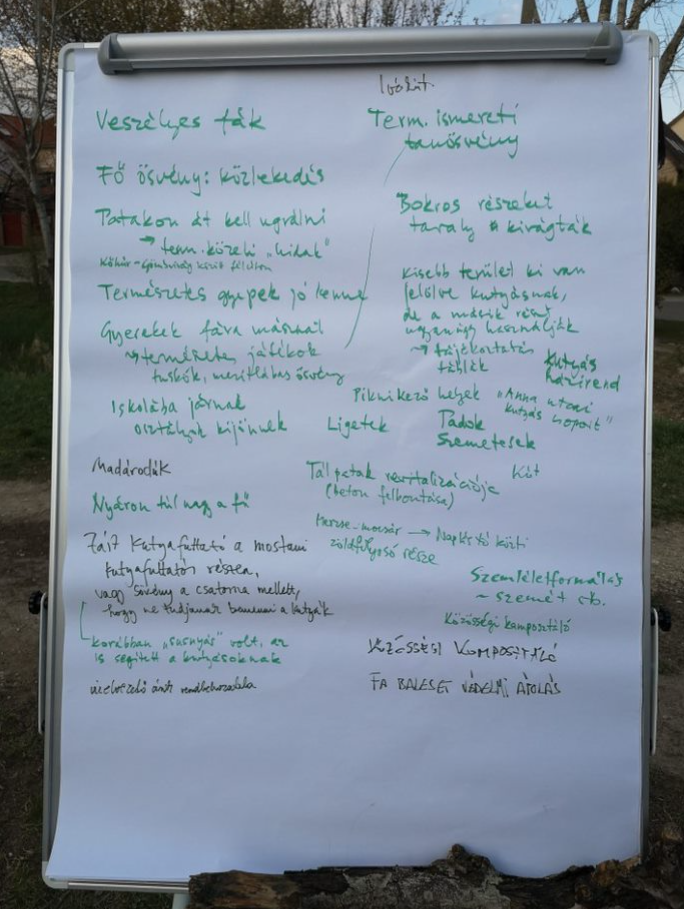 Ivókút
Veszélyes fák
Fő ösvény: közlekedés
Patakon át kell ugrálni
→ term. közeli "hidak"
Természetes gyepek jó lenne
Gyerekek fára másznál
→ természetes játékok
tuskók, mezítlábas ösvény
Iskolába járnak
osztályok kijönnek
Madárodúk
Nyáron túl nagy a fű
Zárt kutyafuttató a mostani
kutyafuttatós részen,
vagy sövény a csatorna mellett,
hogy ne tudjanak bemenni a kutyák
korábban "susnyás" volt, az
is segített a kutyásoknak
vízelvezető árok rendbehozatala
Term. ismereti
tanösvény
Bokros részeket
tavaly kivágták
Kisebb terület ki van
jelölve kutyásnak,
de a másik részt
ugyanúgy használják
→ tájékoztatás
táblák
Kutyás
házirend
"Anna utcai
kutyás csoport"
Piknikező helyek
Ligetek
Padok
Szemetesek
Kút
revitalizációja
(beton felbontása)
→ Naplás tó közti
zöldfolyosó része
Szemléletformálás
~ szemét stb.
Közösségi komposztáló
KÖZÖSSÉGI KOMPOSZTÁLÓ
FA BALESET VÉDELMI ÁPOLÁS